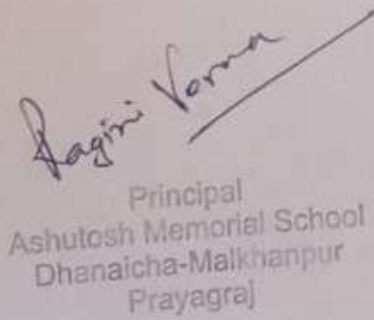 Ragini Verma
Principal
Ashutosh Memorial School
Dhanaicha-Malkhanpur
Prayagraj